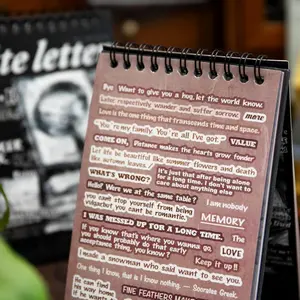 te letter
Bye Want to give you a hug, let the world know.
Later respectively wander and suffer sorrow. more
Love is the one thing that transcends time and space.
"You're my family. You're all I've got." VALUE
COME ON, Distance makes the hearts grow fonder
Let life be beautiful like summer flowers and death
like autumn leaves.
It's just that after being alone
for a long time. I don't want to
care about anything else
WHAT'S WRONG?
Hello! Were we at the same table? I am nobody
You can't stop yourself from being
vulgar but you can't be romantic. MEMORY
I WAS MESSED UP FOR A LONG TIME. The
If you know that's where you wanna go,
you should probably do that early LOVE
acceptance thing, you know? Keep it up!!
I made a snowman who said want to see you.
One thing I know, that is I know nothing. — Socrates Greek
He can find
his way home
FINE FEATHERS